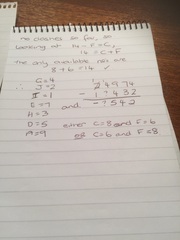 no clashes so far, so
looking at 14 - F = C,
14 = C + F
The only available nos are
8 + 6 = 14 ✓
∴ G = 4
J = 2 24974
I = 1 - 1?432
E = 7 and -?542
H = 3
D = 5 either C = 8 and F = 6
A = 9 or C = 6 and F = 8